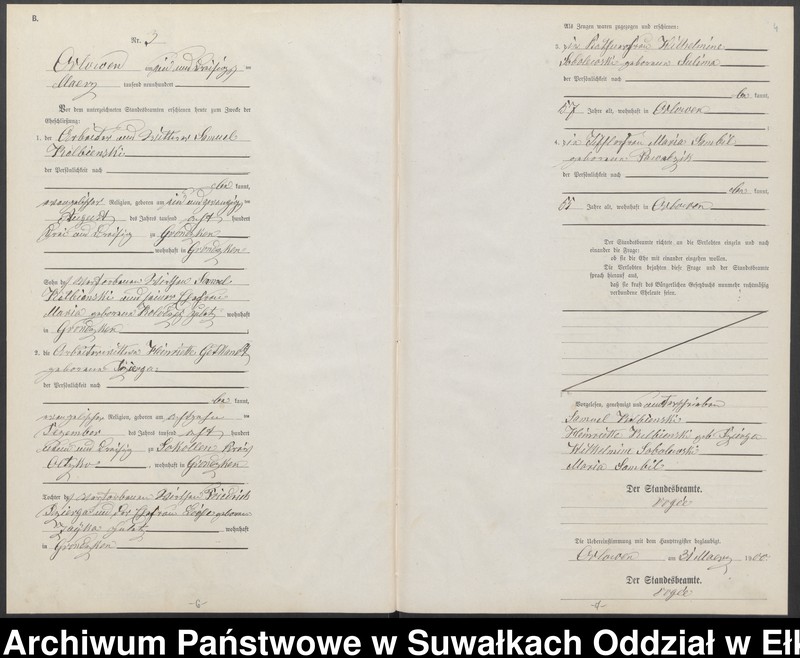 B.
Nr. 3
Orlowen am ein und dreißigs ten
Maerz tausend neunhundert
Vor dem unterzeichneten Standesbeamten erschienen heute zum Zweck der
Eheschließung:
1. der Arbeiter und Wittwer Samuel
Kelbienski
der Persönlichkeit nach
be kannt,
evangelischer Religion, geboren am ein und zwanzigs ten
August des Jahres tausend acht hundert
drei und dreißig zu Grondzken
, wohnhaft in Grondzken
Sohn des verstorbenen Wirthen Samuel
Kelbienski und seiner Ehefrau
Maria geborene zuletzt wohnhaft
in Grondzken
2. die Arbeiterwittwe Heinriette
geborene Dzierga
der Persönlichkeit nach
be kannt,
evangelischer Religion, geboren am achtzehn ten
Dezember des Jahres tausend acht hundert
neun und dreißig zu Sokollen Kreis
Oletzko, wohnhaft in Grondzken
Tochter des verstorbenen Wirthen Friedrich
Dzierga und der Ehefrau geborene
Zayka zuletzt wohnhaft
in Grondzken
-6-
4
Als Zeugen waren zugezogen und erschienen:
3. die Wilhelmine
Sobolewski geborene Sulima
der Persönlichkeit nach
be kannt,
57 Jahre alt, wohnhaft in Orlowen
4. die Maria Sambil
geborene
der Persönlichkeit nach
be kannt,
Jahre alt, wohnhaft in Orlowen
Der Standesbeamte richtete an die Verlobten einzeln und nach
einander die Frage:
ob sie die Ehe mit einander eingehen wollen.
Die Verlobten bejahten diese Frage und der Standesbeamte
sprach hierauf aus,
daß sie kraft des Bürgerlichen Gesetzbuchs nunmehr rechtmäßig
verbundene Eheleute seien.
Vorgelesen, genehmigt und unterschrieben
Samuel Kelbienski
Heinriette Kelbienski geb. Dzierga
Wilhelmine Sobolewski
Maria Sambil
Der Standesbeamte.
Die Uebereinstimmung mit dem Hauptregister beglaubigt.
Orlowen am 31 Maerz 1900
Der Standesbeamte.
Archiwum Państwowe w Suwałkach Oddział w Ełk